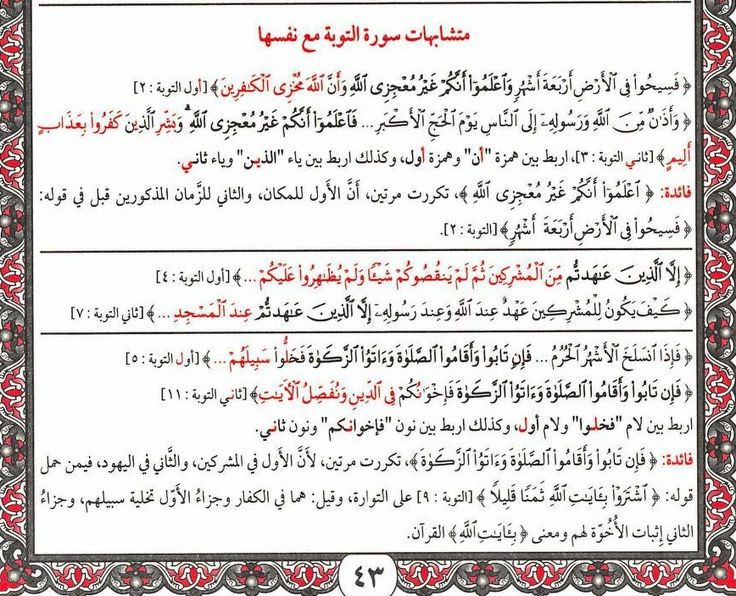 متشابهات سورة التوبة مع نفسها
﴿ فَسِيحُوا۟ فِى ٱلْأَرْضِ أَرْبَعَةَ أَشْهُرٍ وَٱعْلَمُوٓا۟ أَنَّكُمْ غَيْرُ مُعْجِزِى ٱللَّهِ وَأَنَّ ٱللَّهَ مُخْزِى ٱلْكَـٰفِرِينَ ﴾ [أول التوبة : ٢]
﴿ وَأَذَٰنٌ مِّنَ ٱللَّهِ وَرَسُولِهِۦٓ إِلَى ٱلنَّاسِ يَوْمَ ٱلْحَجِّ ٱلْأَكْبَرِ ... فَٱعْلَمُوٓا۟ أَنَّكُمْ غَيْرُ مُعْجِزِى ٱللَّهِ ۗ وَبَشِّرِ ٱلَّذِينَ كَفَرُوا۟ بِعَذَابٍ
أَلِيمٍ ﴾ [ثاني التوبة : ٣]، اربط بين همزة "أن" وهمزة أول، وكذلك اربط بين ياء "الذين" وياء ثاني.
فائدة: ﴿ ٱعْلَمُوٓا۟ أَنَّكُمْ غَيْرُ مُعْجِزِى ٱللَّهِ ﴾، تكررت مرتين، أنَّ الأول للمكان، والثاني للزَّمان المذكورين قبل في قوله:
﴿ فَسِيحُوا۟ فِى ٱلْأَرْضِ أَرْبَعَةَ أَشْهُرٍ ﴾ [التوبة : ٢].
﴿ إِلَّا ٱلَّذِينَ عَـٰهَدتُّم مِّنَ ٱلْمُشْرِكِينَ ثُمَّ لَمْ يَنقُصُوكُمْ شَيْـًٔا وَلَمْ يُظَـٰهِرُوا۟ عَلَيْكُمْ ... ﴾ [أول التوبة : ٤]
﴿ كَيْفَ يَكُونُ لِلْمُشْرِكِينَ عَهْدٌ عِندَ ٱللَّهِ وَعِندَ رَسُولِهِۦٓ إِلَّا ٱلَّذِينَ عَـٰهَدتُّمْ عِندَ ٱلْمَسْجِدِ ... ﴾ [ثاني التوبة : ٧]
﴿ فَإِذَا ٱنسَلَخَ ٱلْأَشْهُرُ ٱلْحُرُمُ ... فَإِن تَابُوا۟ وَأَقَامُوا۟ ٱلصَّلَوٰةَ وَءَاتَوُا۟ ٱلزَّكَوٰةَ فَخَلُّوا۟ سَبِيلَهُمْ ... ﴾ [أول التوبة : ٥]
﴿ فَإِن تَابُوا۟ وَأَقَامُوا۟ ٱلصَّلَوٰةَ وَءَاتَوُا۟ ٱلزَّكَوٰةَ فَإِخْوَٰنُكُمْ فِى ٱلدِّينِ وَنُفَصِّلُ ٱلْـَٔايَـٰتِ ﴾ [ثاني التوبة : ١١]
اربط بين لام "فخلوا" ولام أول، وكذلك اربط بين نون "فإخوانكم" ونون ثاني.
فائدة: ﴿ فَإِن تَابُوا۟ وَأَقَامُوا۟ ٱلصَّلَوٰةَ وَءَاتَوُا۟ ٱلزَّكَوٰةَ ﴾، تكررت مرتين، لأنَّ الأول في المشركين، والثَّاني في اليهود، فيمن حمل
قوله: ﴿ ٱشْتَرَوْا۟ بِـَٔايَـٰتِ ٱللَّهِ ثَمَنًا قَلِيلًا ﴾ [التوبة : ٩] على التوارة، وقيل: هما في الكفار وجزاءُ الأوّل تخلية سبيلهم، وجزاءُ
الثاني إثبات الأُخُوّة لهم ومعنى ﴿ بِـَٔايَـٰتِ ٱللَّهِ ﴾ القرآن.
٤٣